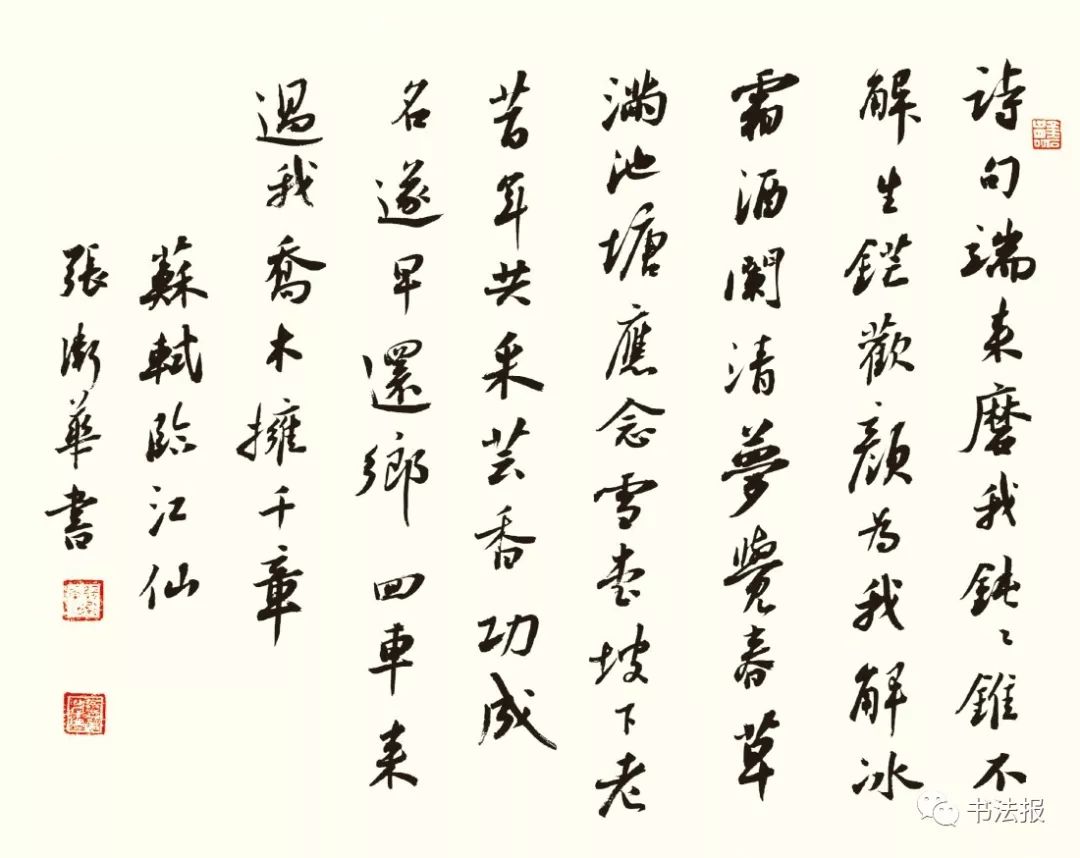 詩句端来磨我鈍〻錐不
解生鋩歡顔为我解冰
霜酒闌清夢覺春草
满池塘應念雪堂坡下老
昔年共采芸香功成
名遂早還鄉回車来
過我喬木擁千章
蘇軾臨江仙
張衛華書
书法报